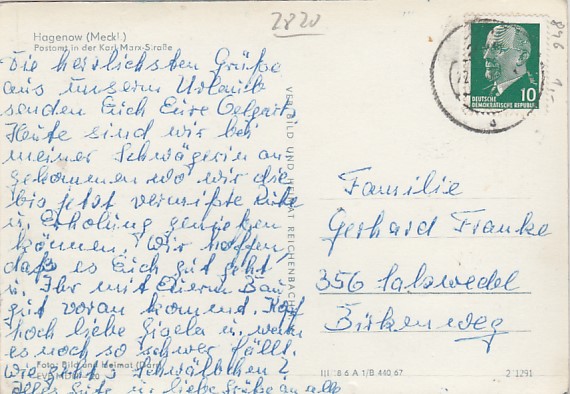 2820
Hagenow (Meckl.)
Postamt in der Karl-Marx-Straße
Die herzlichsten Grüße
aus unserm Urlaub
senden Euch Eure
Heute sind wir bei
meiner Schwägerin an
gekommen wo wir die
bis jetzt vermißte Ruhe
u. Erholung genießen
können. Wir hoffen
daß es Euch gut geht
u. Ihr mit Euerm Bau
gut voran kommt. Kopf
hoch liebe Gisela u. wenn
es noch so schwer fällt.
Wie geht's Schwälbchen?
Alles Gute u. liebe Grüße an alle
Foto: Bild und Heimat
VEB BILD UND HEIMAT REICHENBACH
DEUTSCHE
DEMOKRATISCHE REPUBLIK
10
Familie
Gerhard Franke
356 Salzwedel
Birkenweg
III 18 6 A 1/B 440 67
2 1291